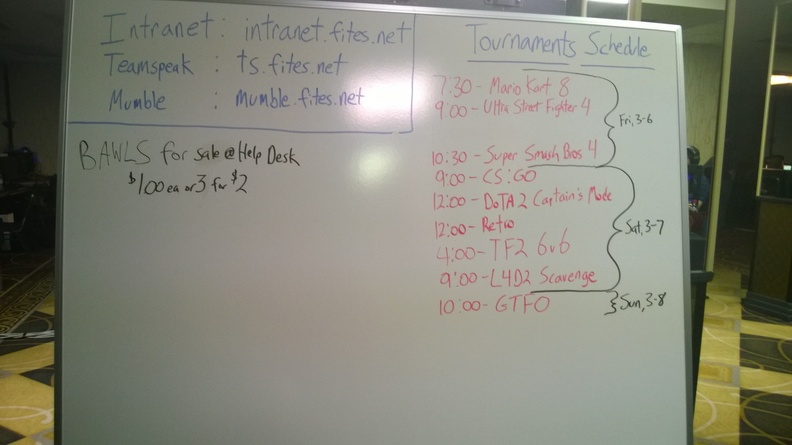 Intranet: intranet.fites.net
Teamspeak : ts.fites.net
Mumble : mumble.fites.net
BAWLS for sale @ Help Desk
$1.00 ea or 3 for $2
Tournaments Schedule
7:30 - Mario Kart 8
9:00 - Ultra Street Fighter 4
Fri, 3-6
10:30 - Super Smash Bros 4
9:00 - CS:GO
12:00 - DoTA 2 Captain's Mode
12:00 - Retro
Sat, 3-7
4:00 - TF2 6v6
9:00 - L4D2 Scavenge
10:00 - GTFO
Sun, 3-8